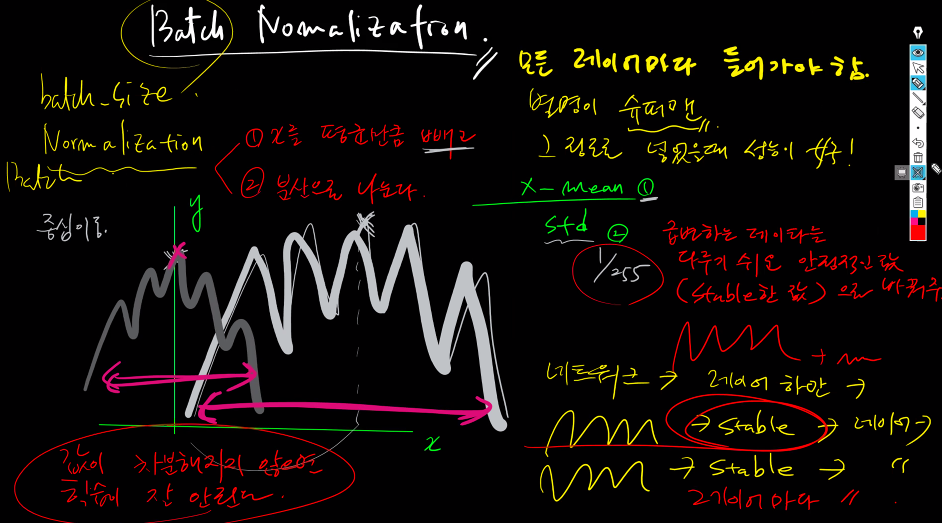 Batch Nomalization.
batch_size.
Normalization
Batch
① x를 평균만큼 빼고
② 분산으로 나눈다.
중심이동.
y
x
값이 차분해지지 않으면
학습이 잘 안된다.
모든 레이어마다 들어가야 함.
별명이 슈퍼맨
그 정도로 넣었을때 성능이 !
x - mean ①
std ②
1/255
급변하는 데이타를
다루기 쉬운 안정적인 값
(stable한 값)으로 바꿔주
네트워크 → 레이어 하단 →
→ stable → 레이어 →
→ stable → "
레이어마다 "